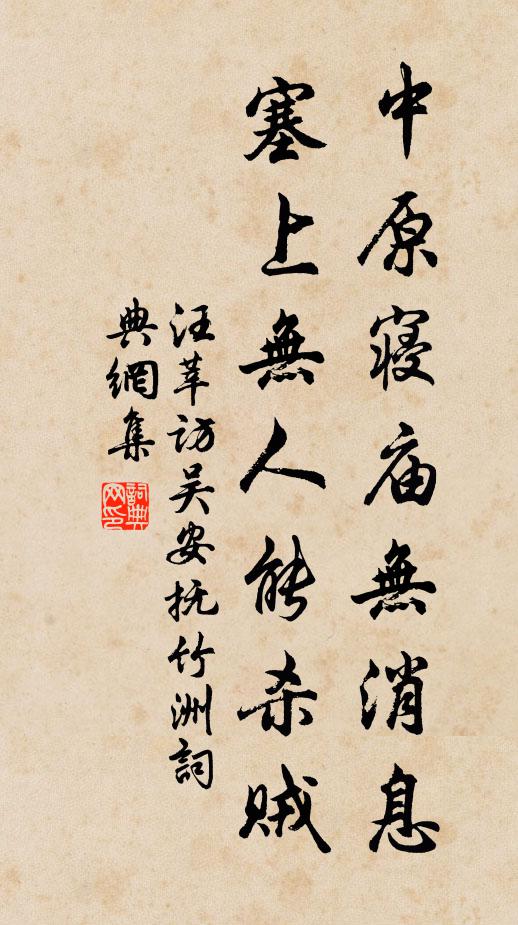 中原寝庙無消息
塞上無人能杀贼
汪莘访吴安抚竹洲詞
典網集
詞典网印